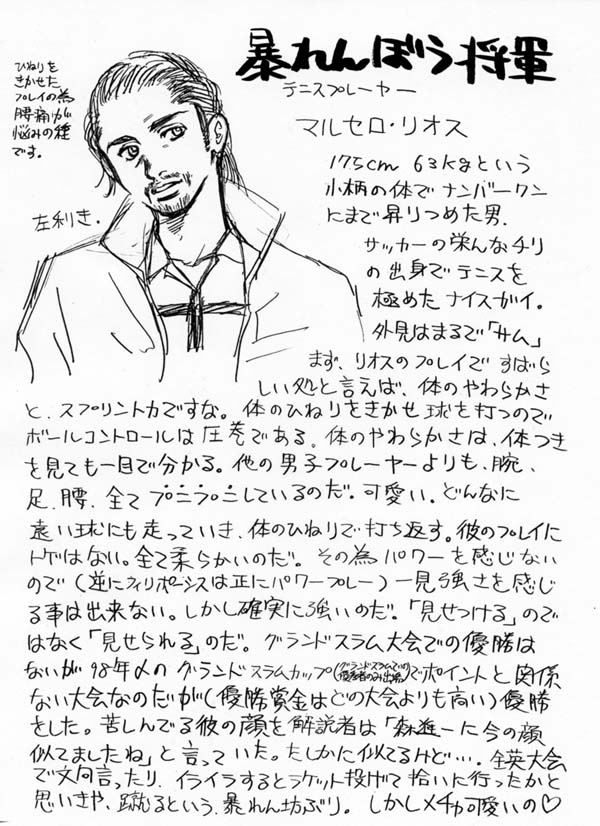 暴れんぼう将軍
テニスプレーヤー
マルセロ・リオス
ひねりを
きかせた
プレイの為
腰痛が
悩みの種
です。
左利き.
175cm 63kgという
小柄の体でナンバーワン
にまで昇りつめた男.
サッカーの栄んなチリ
の出身でテニスを
極めたナイスガイ。
外見はまるで「サム」
まず、リオスのプレイですばら
しい処と言えば、体のやわらかさ
と、スプリント力ですな。体のひねりをきかせ球を打つので
ボールコントロールは圧巻である。体のやわらかさは、体つき
を見ても一目で分かる。他の男子プレーヤーよりも、腕、
足、腰、全てプニプニしているのだ。可愛い。どんなに
遠い球にも走っていき、体のひねりで打ち返す。彼のプレイに
トゲはない。全て柔らかいのだ。その為パワーを感じない
ので(逆にフィリポーシスは正にパワープレー)一見強さを感じ
る事は出来ない。しかし確実に強いのだ。「見せつける」ので
はなく「見せられる」のだ。グランドスラム大会での優勝は
ないが98年〆のグランドスラムカップ(グランドスラムでの優秀者のみ出場)でポイントと関係
ない大会なのだが(優勝賞金はどの大会よりも高い)優勝
をした。苦しんでる彼の顔を解説者は「森進一に今の顔
似てましたね」と言っていた。たしかに似てるけど…。全英大会
で文句言ったり、イライラするとラケット投げて拾いに行ったかと
思いきや、蹴るという、暴れん坊ぶり。しかしメチャ可愛いの♡